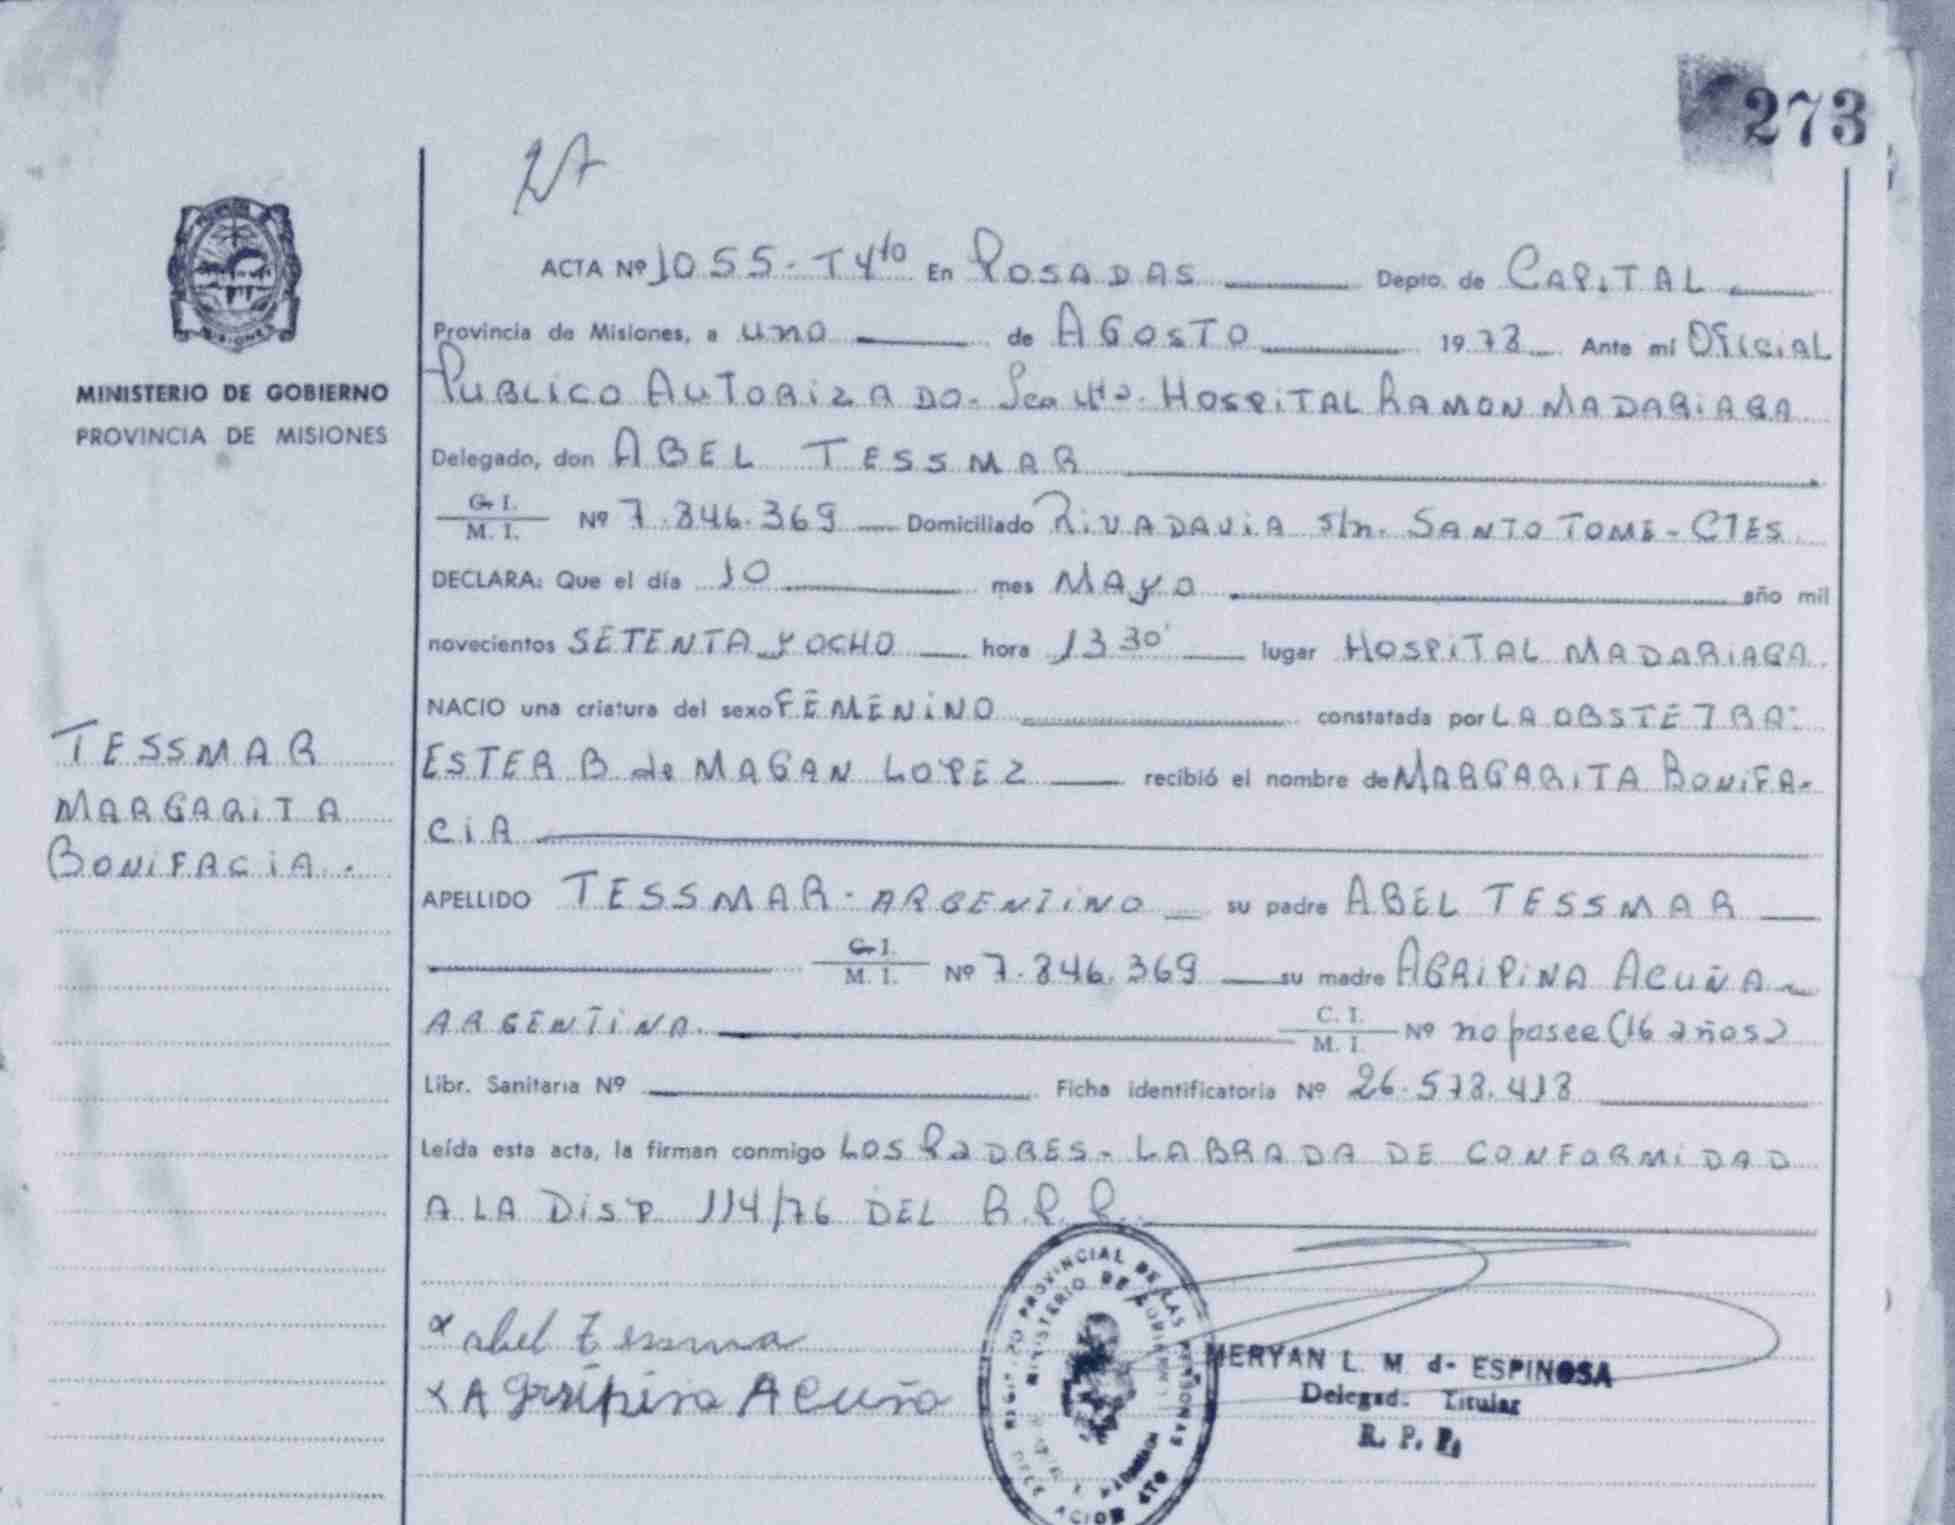 273
ACTA Nº 1055- T4to En POSADAS Depto. de CAPITAL
MINISTERIO DE GOBIERNO
PROVINCIA DE MISIONES
Provincia de Misiones, a uno de AGOSTO 1978 Ante mí OFICIAL
PUBLICO AUTORIZADO- HOSPITAL RAMON MADARIAGA
Delegado, don ABEL TESSMAR
C. I.
M. I. Nº 7.846.369 Domiciliado RIVADAVIA s/n. SANTO TOME - CTES
DECLARA: Que el día 10 mes MAYO año mil
novecientos SETENTA y OCHO hora 13 30 lugar HOSPITAL MADARIAGA
NACIO una criatura del sexo FEMENINO constatada por LA OBSTETRA:
ESTER B de MAGAN LOPEZ recibió el nombre de MARGARITA BONIFA-
CIA
TESSMAR
MARGARITA
BONIFACIA.
APELLIDO TESSMAR- ARGENTINO su padre ABEL TESSMAR
C. I.
M. I. Nº 7.846.369 su madre AGRIPINA ACUÑA
ARGENTINA. C. I.
M. I. Nº no posee (16 años)
Libr. Sanitaria Nº Ficha identificatoria Nº 26.578.418
Leída esta acta, la firman conmigo LOS PADRES- LABRADA DE CONFORMIDAD
A LA DISP. 114/76 DEL R.P.P.
x abel Tessma
x Agripina Acuña
REGISTRO PROVINCIAL DE LAS PERSONAS
MINISTERIO DE GOBIERNO
MERYAN L. M. de ESPINOSA
Delegad. Titular
R. P. P.